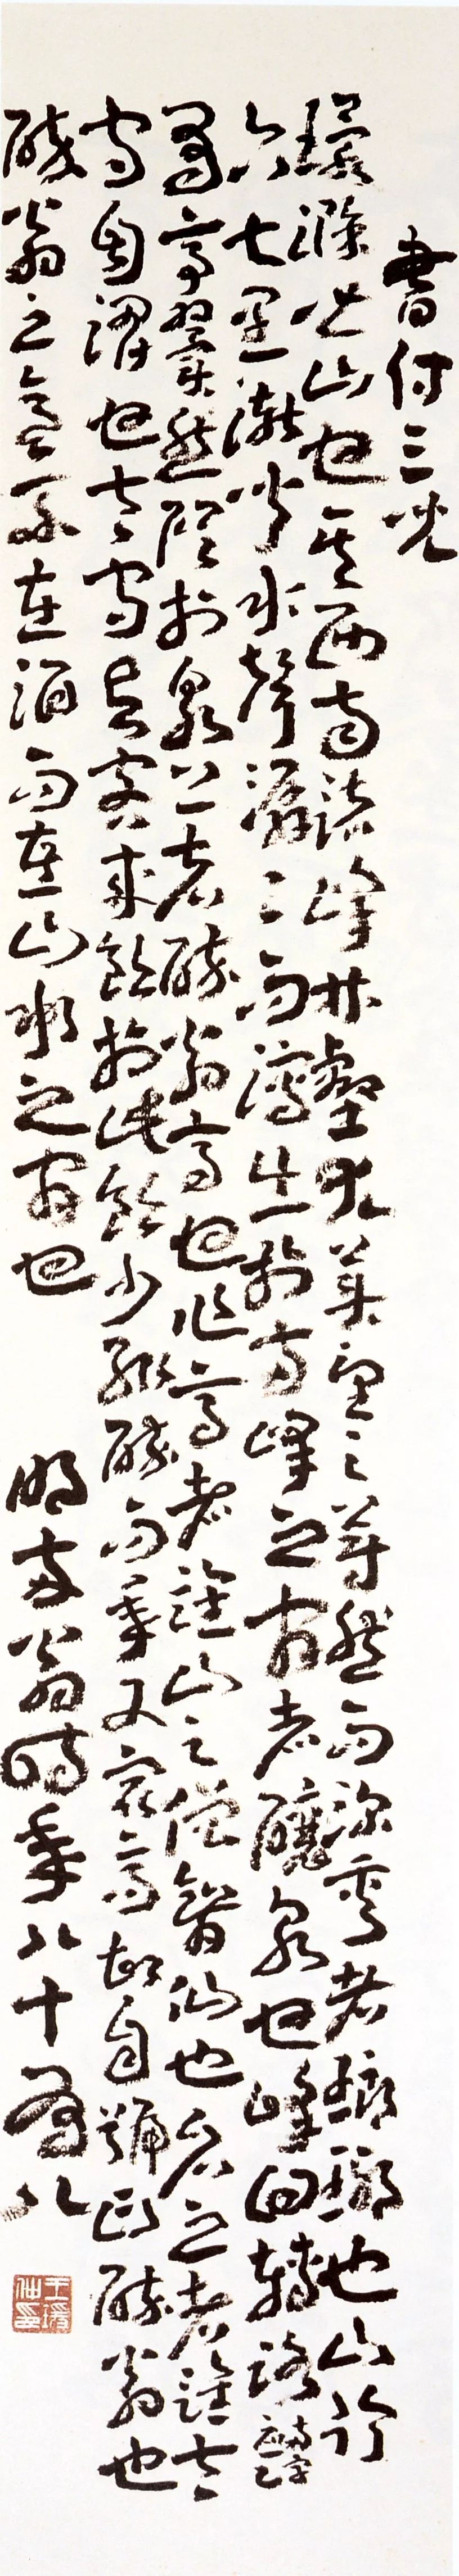 書付三
環滁皆山也其西南諸峰林壑尤美望之蔚然而深秀者瑯琊也山行
六七里漸聞水聲潺々而瀉出於兩峰之間者釀泉也峰回轉路
有亭翼然臨於泉上者醉翁亭也作亭者誰山之僧智仙也名之者誰太
守自謂也太守與客來飲於此飲少輒醉而年又最高故自號曰醉翁也
醉翁之意不在酒而在山水之間也
明兩翁時年八十有八
王瑗仲印